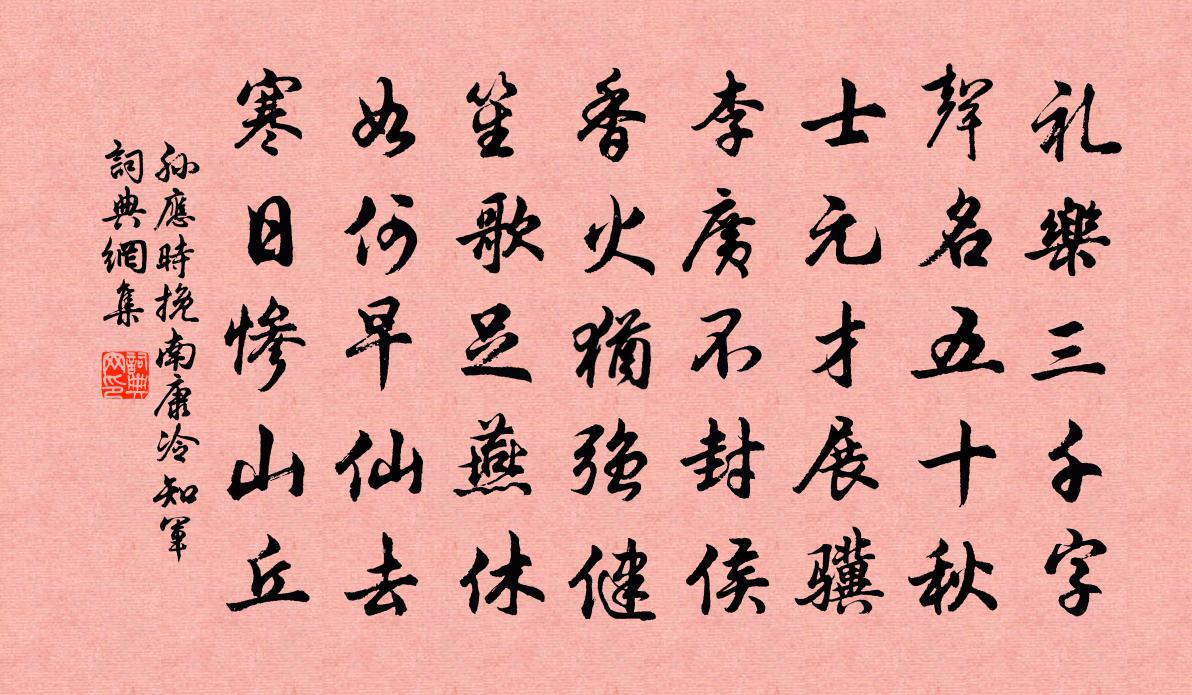 礼樂三千字
聲名五十秋
士元才展驥
李廣不封侯
香火猶強健
笙歌足燕休
如何早仙去
寒日慘山丘
孫應時挽南康冷知軍
詞典網集
詞典网印